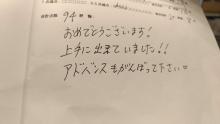 94
おめでとうございます!
上手に出来ていました!!
アドバンスもがんばって下さい